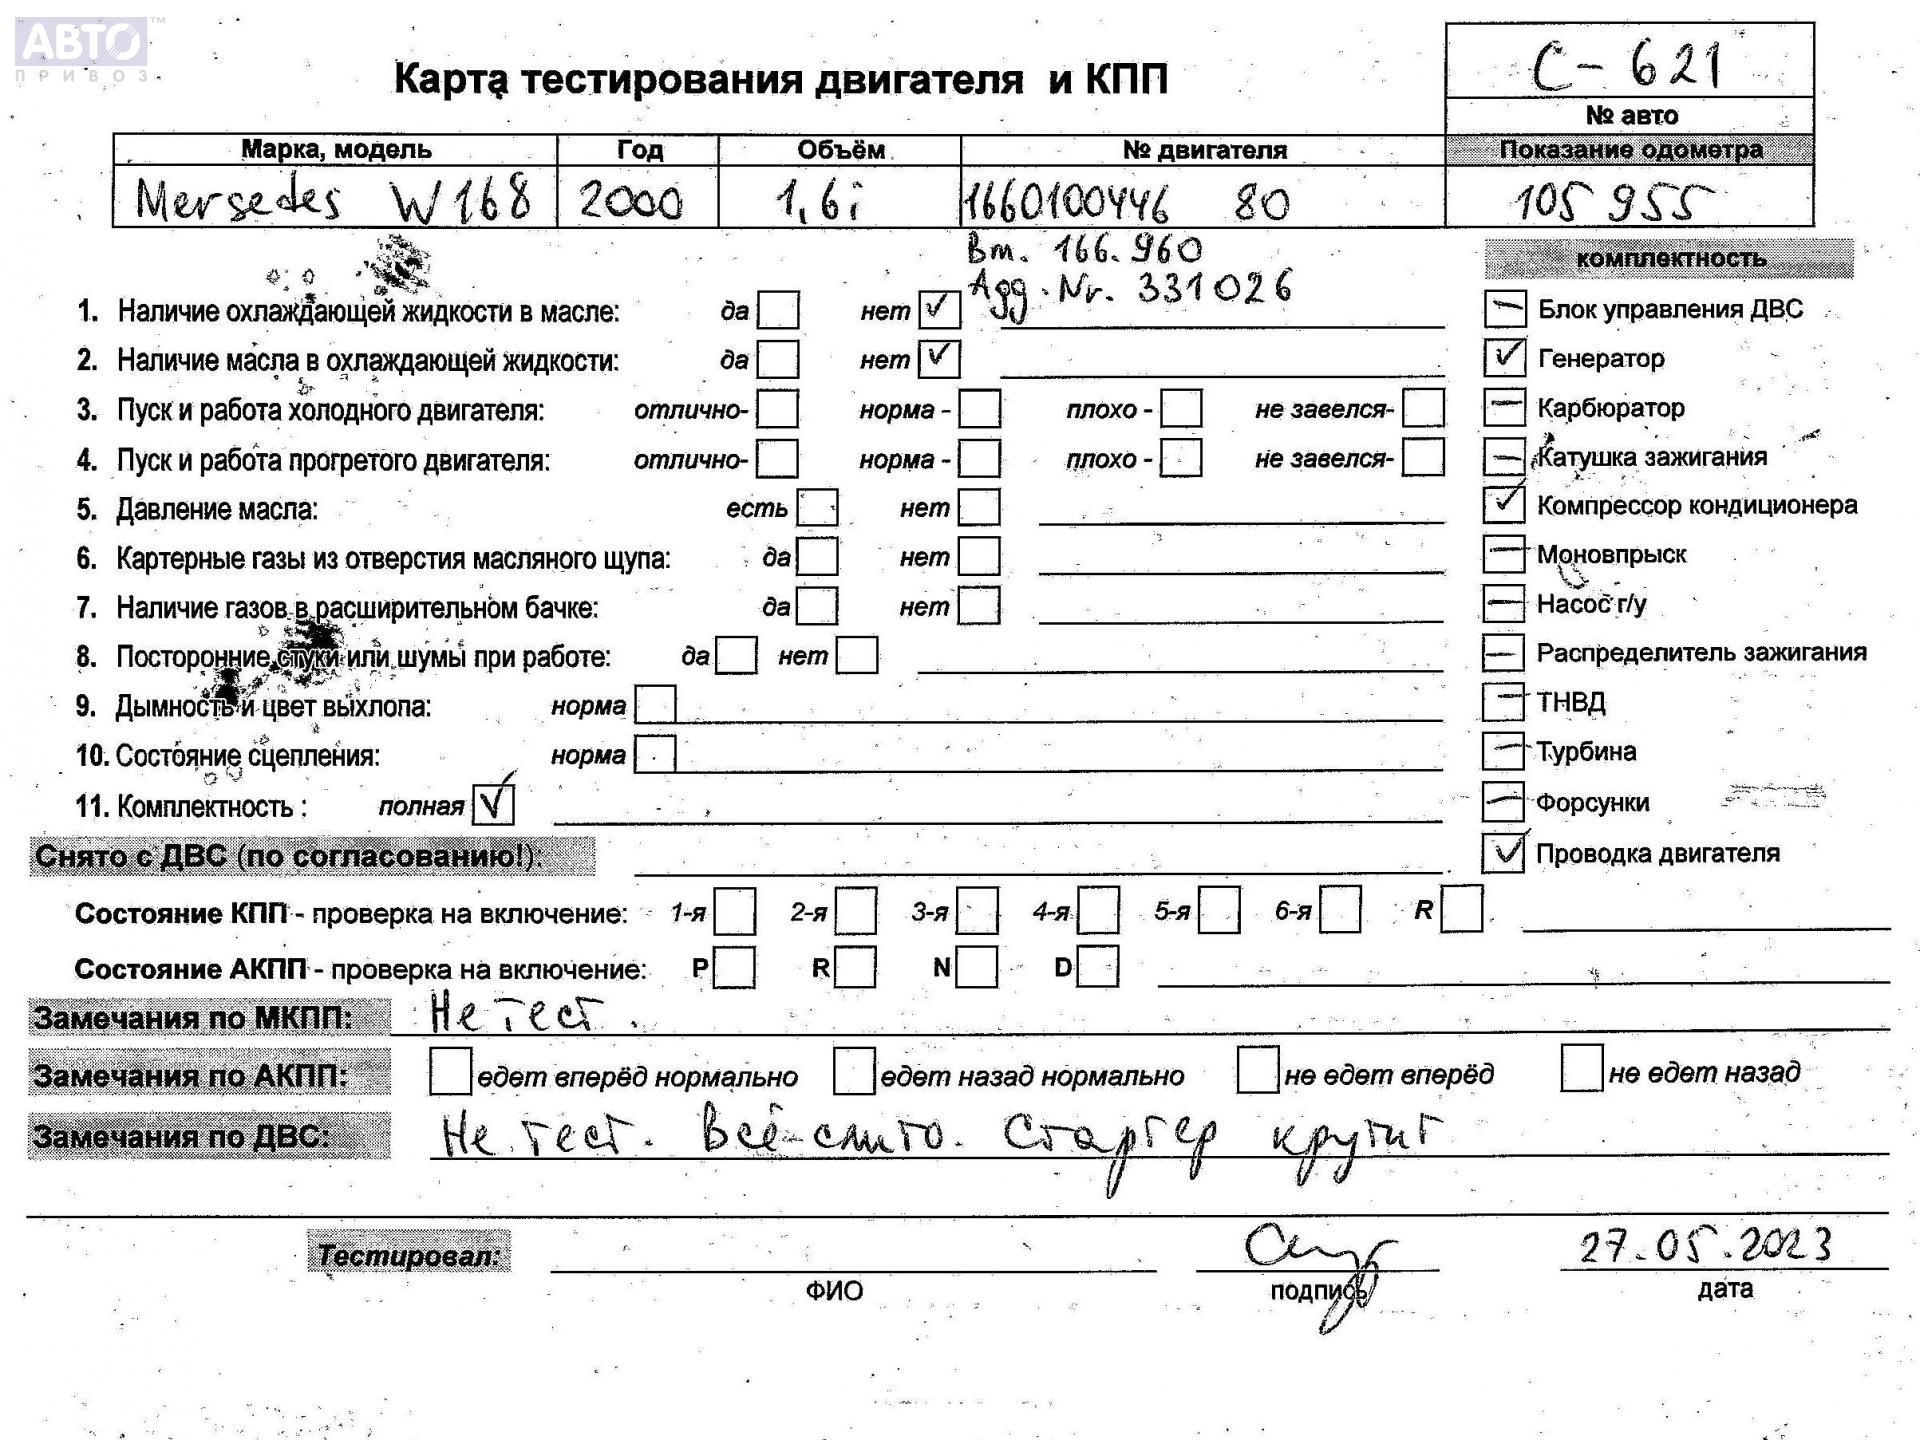 АВТО™
ПРИВОЗ
С-621
Карта тестирования двигателя и КПП
№ авто
Марка, модель Год Объём № двигателя Показание одометра
Mersedes W168 2000 1,6i 1660100446 80 105 955
Вm. 166.960
комплектность
Agg. Nr. 331026
1. Наличие охлаждающей жидкости в масле: да нет ✓ — Блок управления ДВС
2. Наличие масла в охлаждающей жидкости: да нет ✓ ✓ Генератор
3. Пуск и работа холодного двигателя: отлично- норма - плохо - не завелся- — Карбюратор
4. Пуск и работа прогретого двигателя: отлично- норма - плохо - не завелся- — Катушка зажигания
5. Давление масла: есть нет ✓ Компрессор кондиционера
6. Картерные газы из отверстия масляного щупа: да нет — Моновпрыск
7. Наличие газов в расширительном бачке: да нет — Насос г/у
8. Посторонние стуки или шумы при работе: да нет — Распределитель зажигания
9. Дымность и цвет выхлопа: норма — ТНВД
10. Состояние сцепления: норма — Турбина
11. Комплектность : полная ✓ — Форсунки
Снято с ДВС (по согласованию!): ✓ Проводка двигателя
Состояние КПП - проверка на включение: 1-я 2-я 3-я 4-я 5-я 6-я R
Состояние АКПП - проверка на включение: P R N D
Замечания по МКПП: Не тест.
Замечания по АКПП: едет вперёд нормально едет назад нормально не едет вперёд не едет назад
Замечания по ДВС: Не тест. Всё слито. Стартер крутит
Тестировал: 27.05.2023
ФИО подпись дата